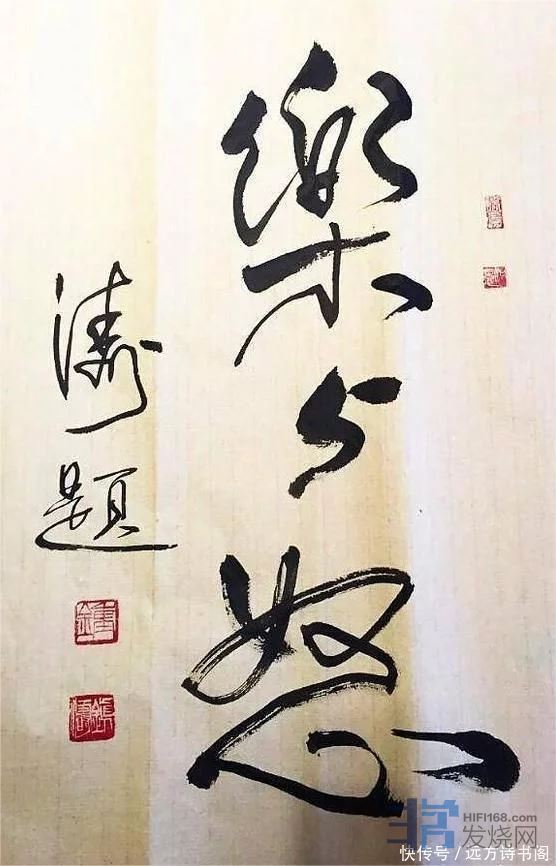 樂与怒
濤題
鍾
鎮濤
HIFI168.com
发烧网
快传号/远方诗书阁